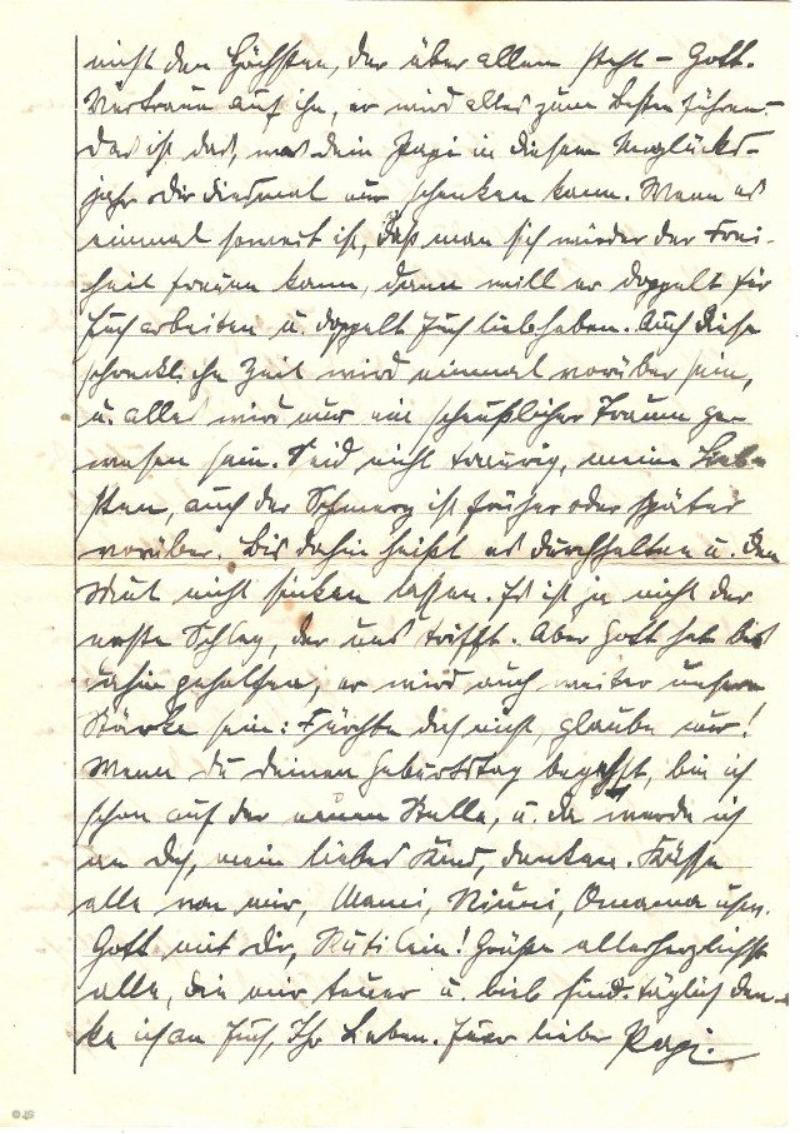 nicht den Höchsten, der über allem steht – Gott.
Vertraue auf ihn, er wird alles zum Besten führen. –
Das ist das, was dein Papi in diesem Unglücks-
jahr dir diesmal nur schenken kann. Wenn es
einmal soweit ist, daß man sich wieder der Frei-
heit freuen kann, dann will er doppelt für
Euch arbeiten u. doppelt Euch liebhaben. Auch diese
schreckliche Zeit wird einmal vorüber sein,
u. alles wird nur ein scheußlicher Traum ge-
wesen sein. Seid nicht traurig, meine Lieb-
sten, auch der Schmerz ist früher oder später
vorüber. Bis dahin heißt es durchhalten u. den
Mut nicht sinken lassen. Es ist ja nicht der
erste Schlag, der uns trifft. Aber Gott hat bis
dahin geholfen, er wird auch weiter unsere
Stärke sein: Fürchte dich nicht, glaube nur!
Wenn du deinen Geburtstag begehst, bin ich
schon auf der neuen Stelle, u. da werde ich
an dich, mein liebes Kind, denken. Küsse
alle von mir, Mami, Niuni, Omama usw.
Gott mit dir, Mutilein! Grüße allerherzlichst
alle, die mir teuer u. lieb sind. Täglich den-
ke ich an Euch, Ihr Lieben. Euer lieber Papi.